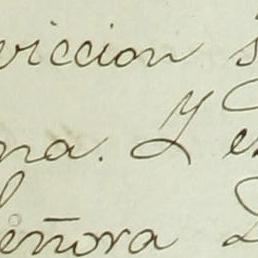 viccion s
na. Y e
eñora